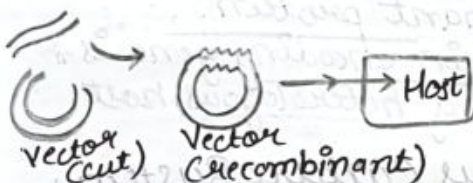 Host
vector
(cut)
vector
(recombinant)